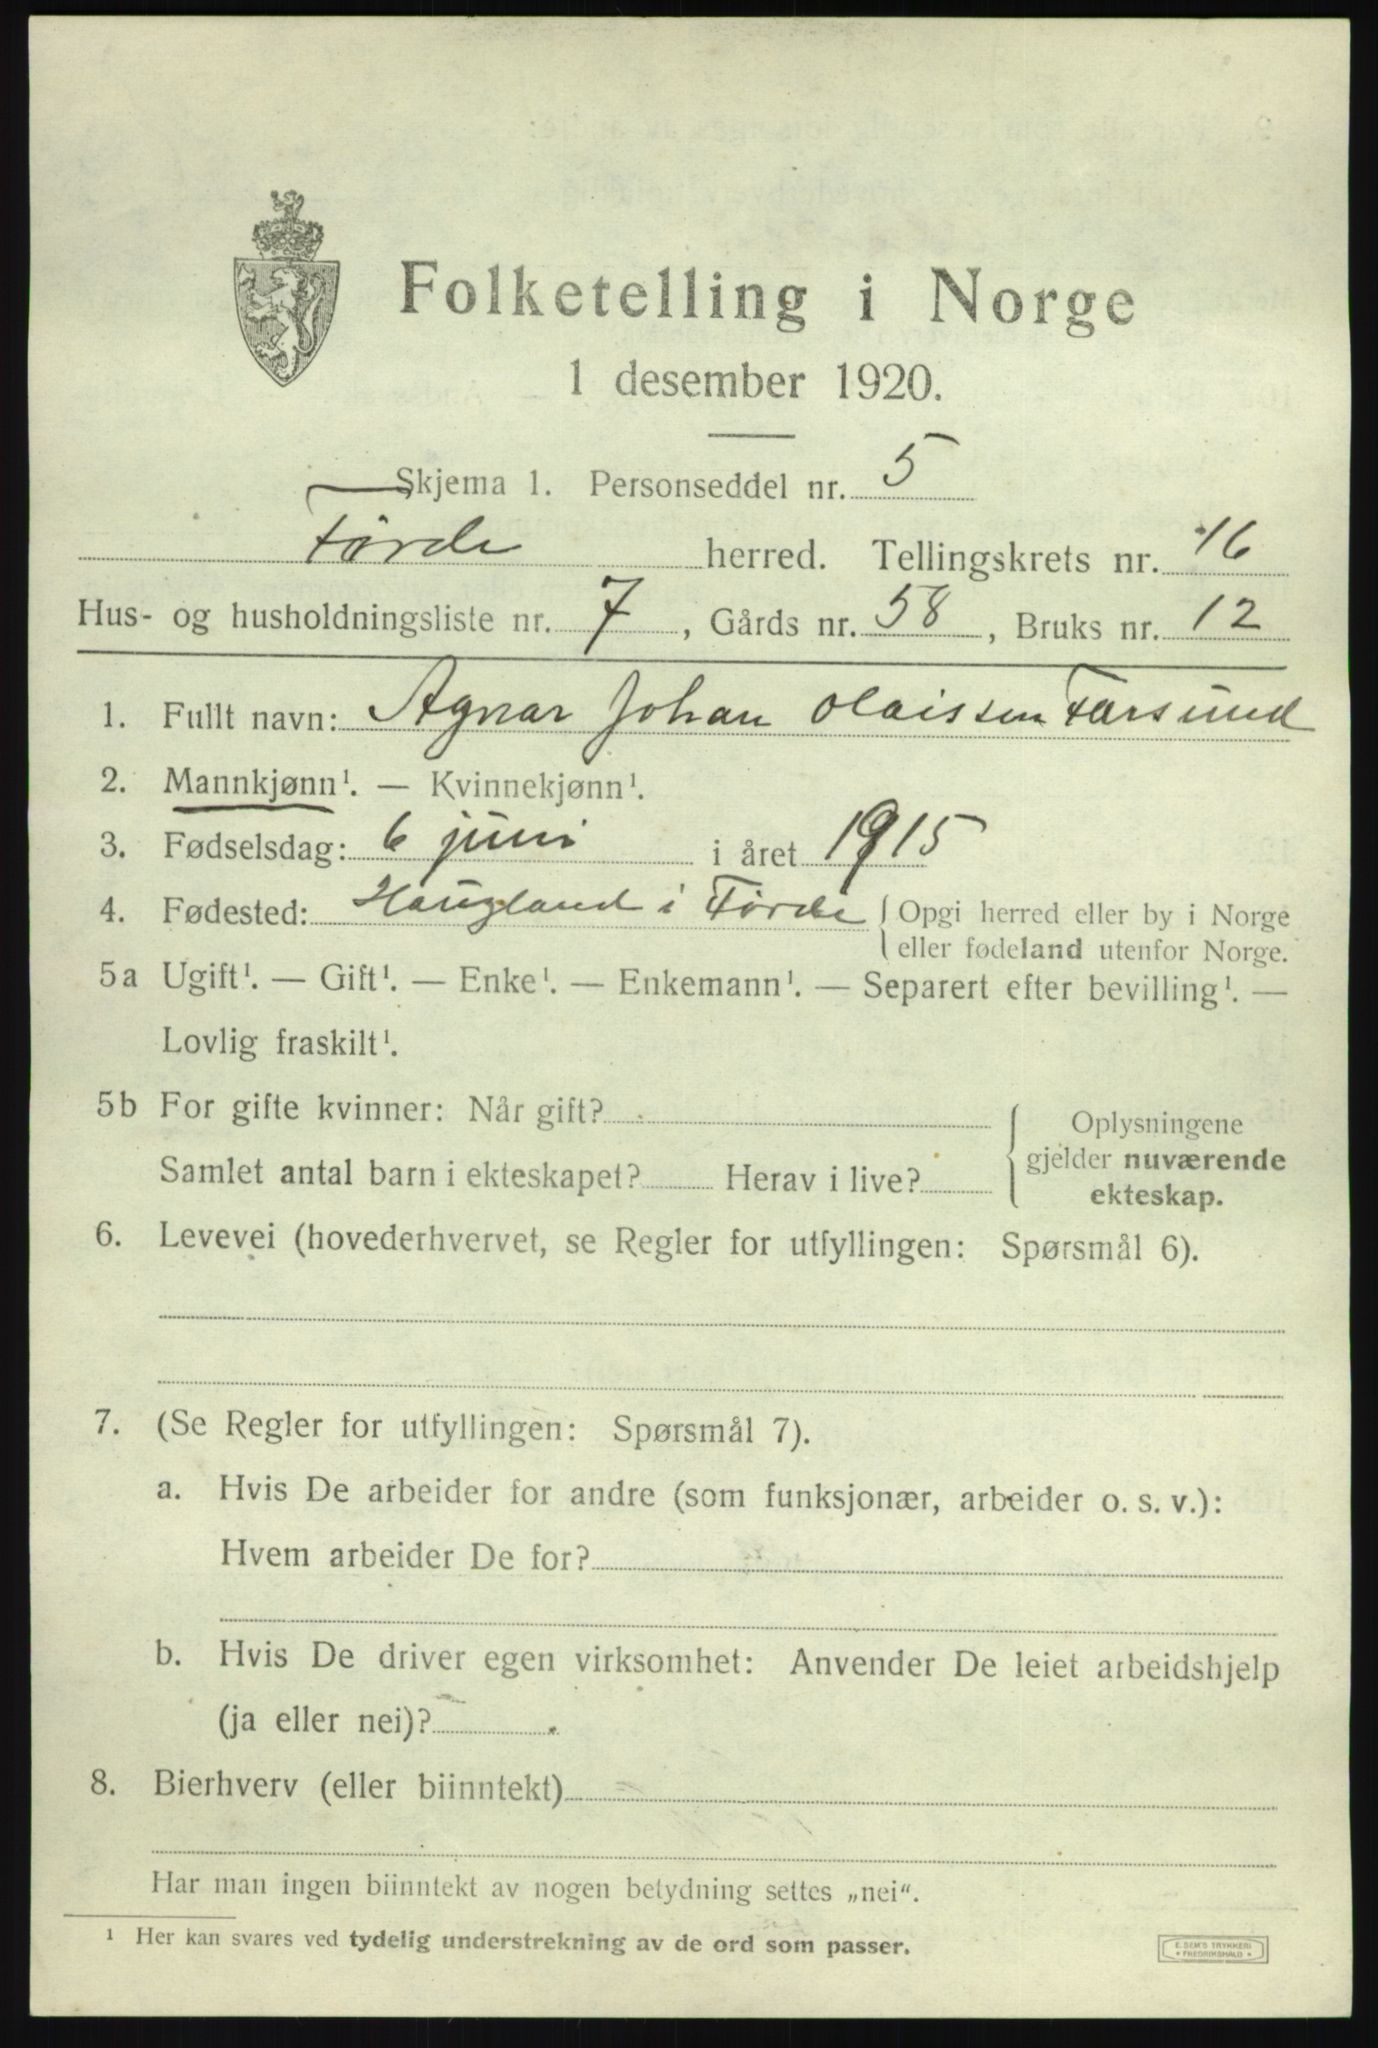 Folketelling i Norge
1 desember 1920.
Skjema 1. Personseddel nr. 5
Førde herred. Tellingskrets nr. 16
Hus- og husholdningsliste nr. 7, Gårds nr. 58, Bruks nr. 12
1. Fullt navn: Agnar Johan Olaissen Farsund
2. Mannkjønn¹. — Kvinnekjønn¹.
3. Fødselsdag: 6 juni i året 1915
4. Fødested: Haugland i Førde { Opgi herred eller by i Norge
eller fødeland utenfor Norge.
5a Ugift¹. — Gift¹. — Enke¹. — Enkemann¹. — Separert efter bevilling¹. —
Lovlig fraskilt¹.
5b For gifte kvinner: Når gift?
Oplysningene
gjelder nuværende
ekteskap.
Samlet antal barn i ekteskapet? Herav i live?
6. Levevei (hovederhvervet, se Regler for utfyllingen: Spørsmål 6).
7. (Se Regler for utfyllingen: Spørsmål 7).
a. Hvis De arbeider for andre (som funksjonær, arbeider o. s. v.):
Hvem arbeider De for?
b. Hvis De driver egen virksomhet: Anvender De leiet arbeidshjelp
(ja eller nei)?
8. Bierhverv (eller biinntekt)
Har man ingen biinntekt av nogen betydning settes „nei“.
¹ Her kan svares ved tydelig understrekning av de ord som passer.
E. SEM'S TRYKKERI
FREDRIKSHALD